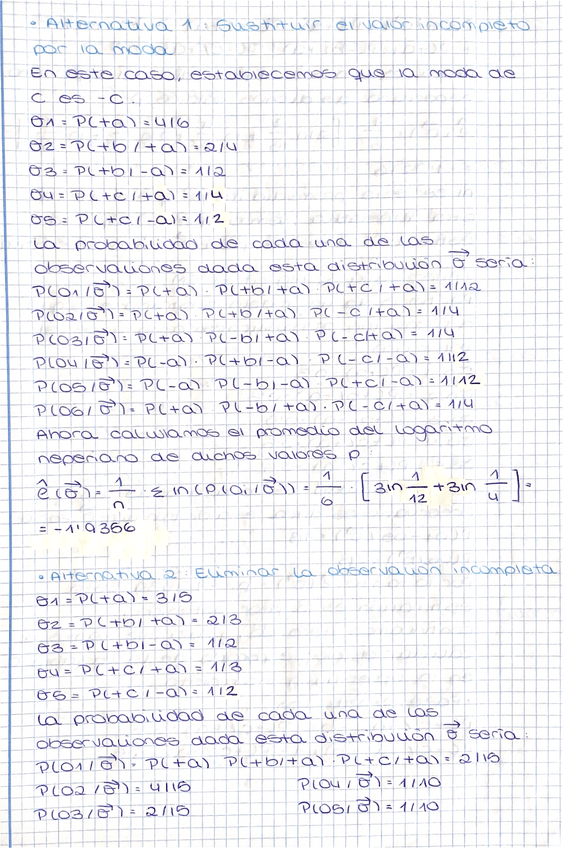 • Alternativa 1: Sustituir el valor incompleto
por la moda
En este caso, establecemos que la moda de
C es -c.
θ1 = P(+a) = 4/6
θ2 = P(+b/+a) = 2/4
θ3 = P(+b/-a) = 1/2
θ4 = P(+c/+a) = 1/4
θ5 = P(+c/-a) = 1/2
La probabilidad de cada una de las
observaciones dada esta distribución θ⃗ sería:
P(O1/θ⃗) = P(+a) · P(+b/+a) P(+c/+a) = 1/12
P(O2/θ⃗) = P(+a) P(+b/+a) P(-c/+a) = 1/4
P(O3/θ⃗) = P(+a) P(-b/+a) P(-c/+a) = 1/4
P(O4/θ⃗) = P(-a) · P(+b/-a) P(-c/-a) = 1/12
P(O5/θ⃗) = P(-a) P(-b/-a) P(+c/-a) = 1/12
P(O6/θ⃗) = P(+a) P(-b/+a) · P(-c/+a) = 1/4
Ahora calculamos el promedio del logaritmo
neperiano de dichos valores p:
ê(θ⃗) = 1/n · Σ ln(P(Oi/θ⃗)) = 1/6 · [3 ln 1/12 + 3 ln 1/4] =
= -1'9356
• Alternativa 2: Eliminar la observación incompleta
θ1 = P(+a) = 3/5
θ2 = P(+b/+a) = 2/3
θ3 = P(+b/-a) = 1/2
θ4 = P(+c/+a) = 1/3
θ5 = P(+c/-a) = 1/2
La probabilidad de cada una de las
observaciones dada esta distribución θ⃗ sería:
P(O1/θ⃗) = P(+a) P(+b/+a) · P(+c/+a) = 2/15
P(O2/θ⃗) = 4/15 P(O4/θ⃗) = 1/10
P(O3/θ⃗) = 2/15 P(O5/θ⃗) = 1/10